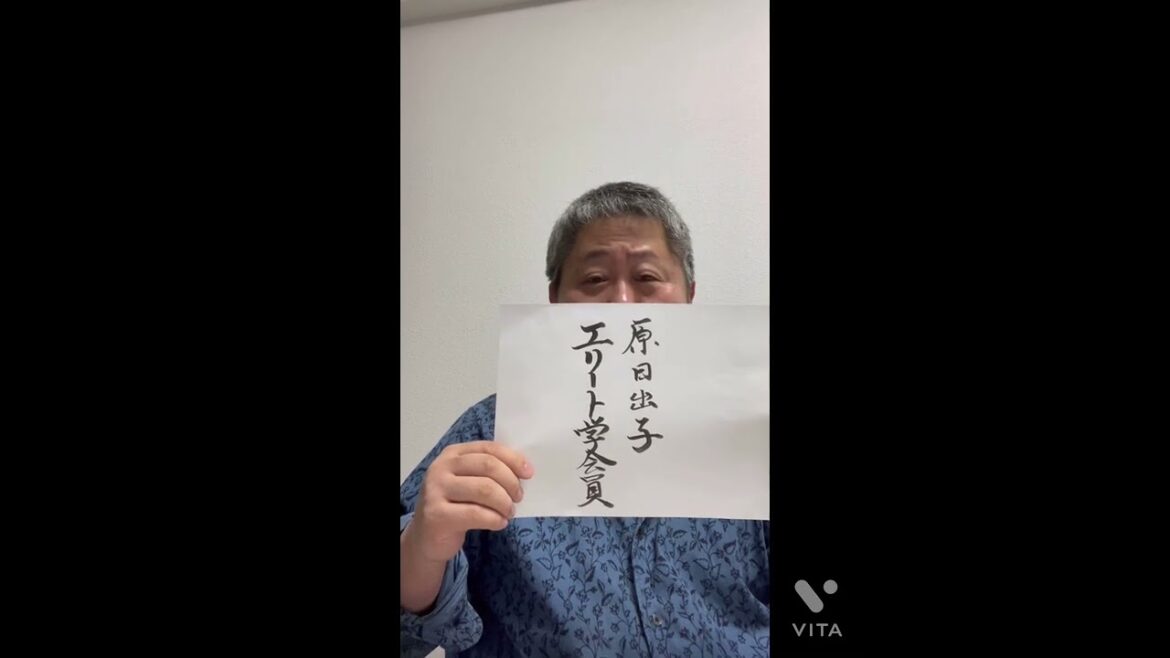 原日出子
エリート学会員
VITA